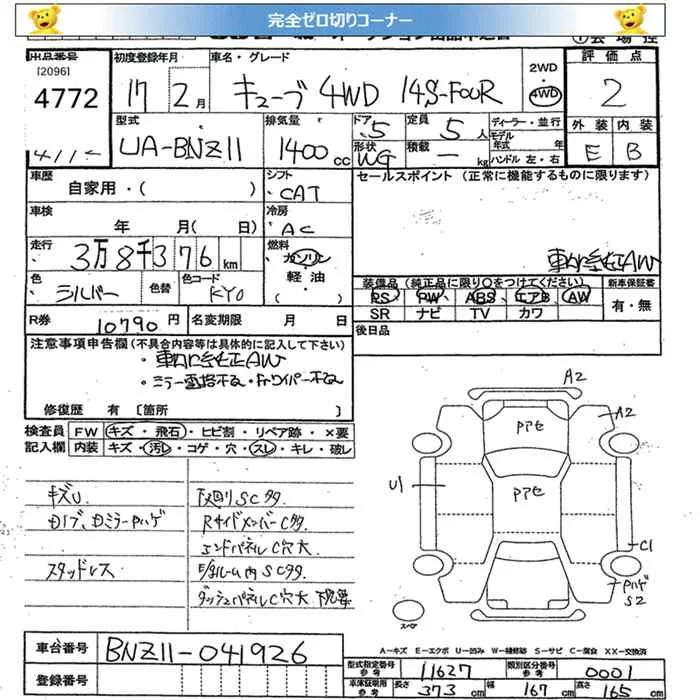 完全ゼロ切りコーナー
出品番号
(2096)
4772
初度登録年月
17 2月
車名・グレード
キューブ 4WD 14S-FOUR
2WD
・
4WD
評価点
2
外装 内装
E B
型式
UA-BNZ11
排気量
1400cc
ドア
5
形状
WG
定員
5人
積載
- kg
ディーラー・並行
モデル年式 年
ハンドル 左・右
車歴
自家用・( )
シフト
CAT
セールスポイント (正常に機能するものに限ります)
車検
年 月( 日)
冷房
AC
走行
3万8千376km
燃料
ガソリン
軽油
( )
車外純正AW
色
シルバー
色替
色コード
KY0
装備品(純正品に限り○をつけてください)
PS PW ABS エアB AW
SR ナビ TV カワ
新車保証書
有・無
R券
10790円
名変期限 月 日
後日品
注意事項申告欄(不具合内容等は具体的に記入して下さい)
修復歴 有 [箇所 ]
検査員記入欄
FW キズ・飛石・ヒビ割・リペア跡・×要
内装 キズ・汚レ・コゲ・穴・スレ・キレ・破レ
キズU
スタッドレス
下回りSC多
RサイドメンバーC多
エンドパネルC穴大
ダッシュパネルC穴大
A2
A2
Pアセ
Pアセ
U1
C1
Pハゲ
S2
スペア
A-キズ E-エクボ U-凹み W-補修跡 S-サビ C-腐食 XX-交換済
車台番号
BNZ11-041926
登録番号
型式指定番号 参考
11627
類別区分番号 参考
0001
車庫証明用 参考
長さ 373cm 幅 167cm 高さ 165cm